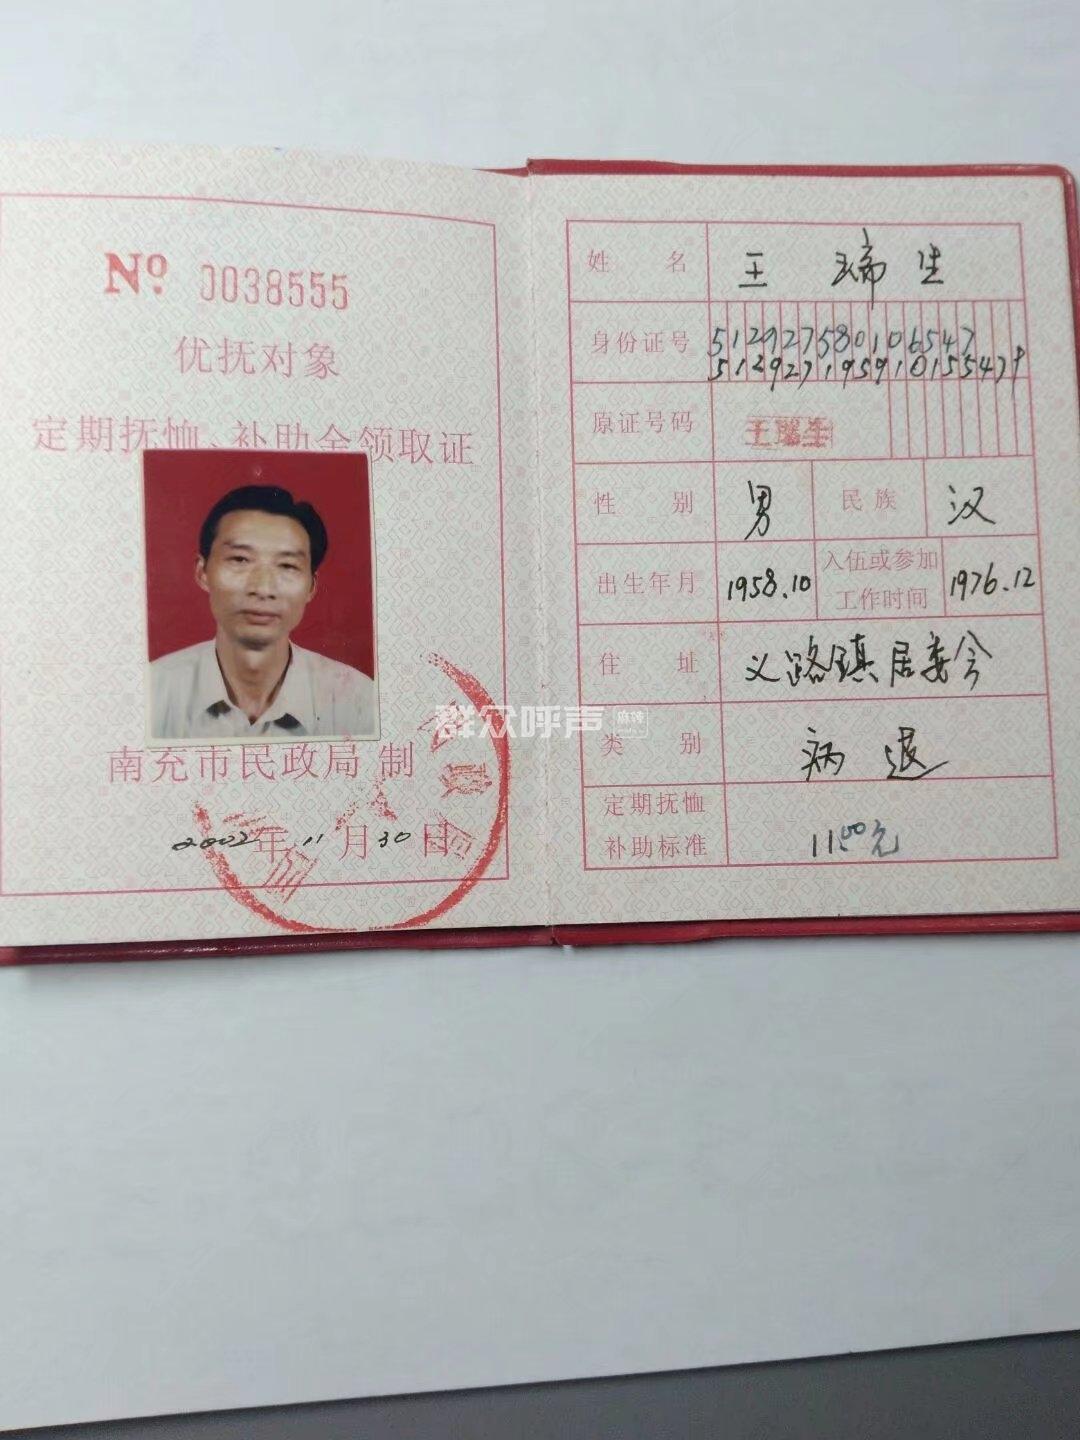 № 0038555
优抚对象
定期抚恤、补助金领取证
南充市民政局 制
2002年11月30日
姓 名 王瑞生
身份证号 512927580106547
原证号码 王瑞生
性 别 男 民族 汉
出生年月 1958.10 入伍或参加工作时间 1976.12
住 址 义路镇居委会
类 别 病退
定期抚恤补助标准
群众呼声 麻辣